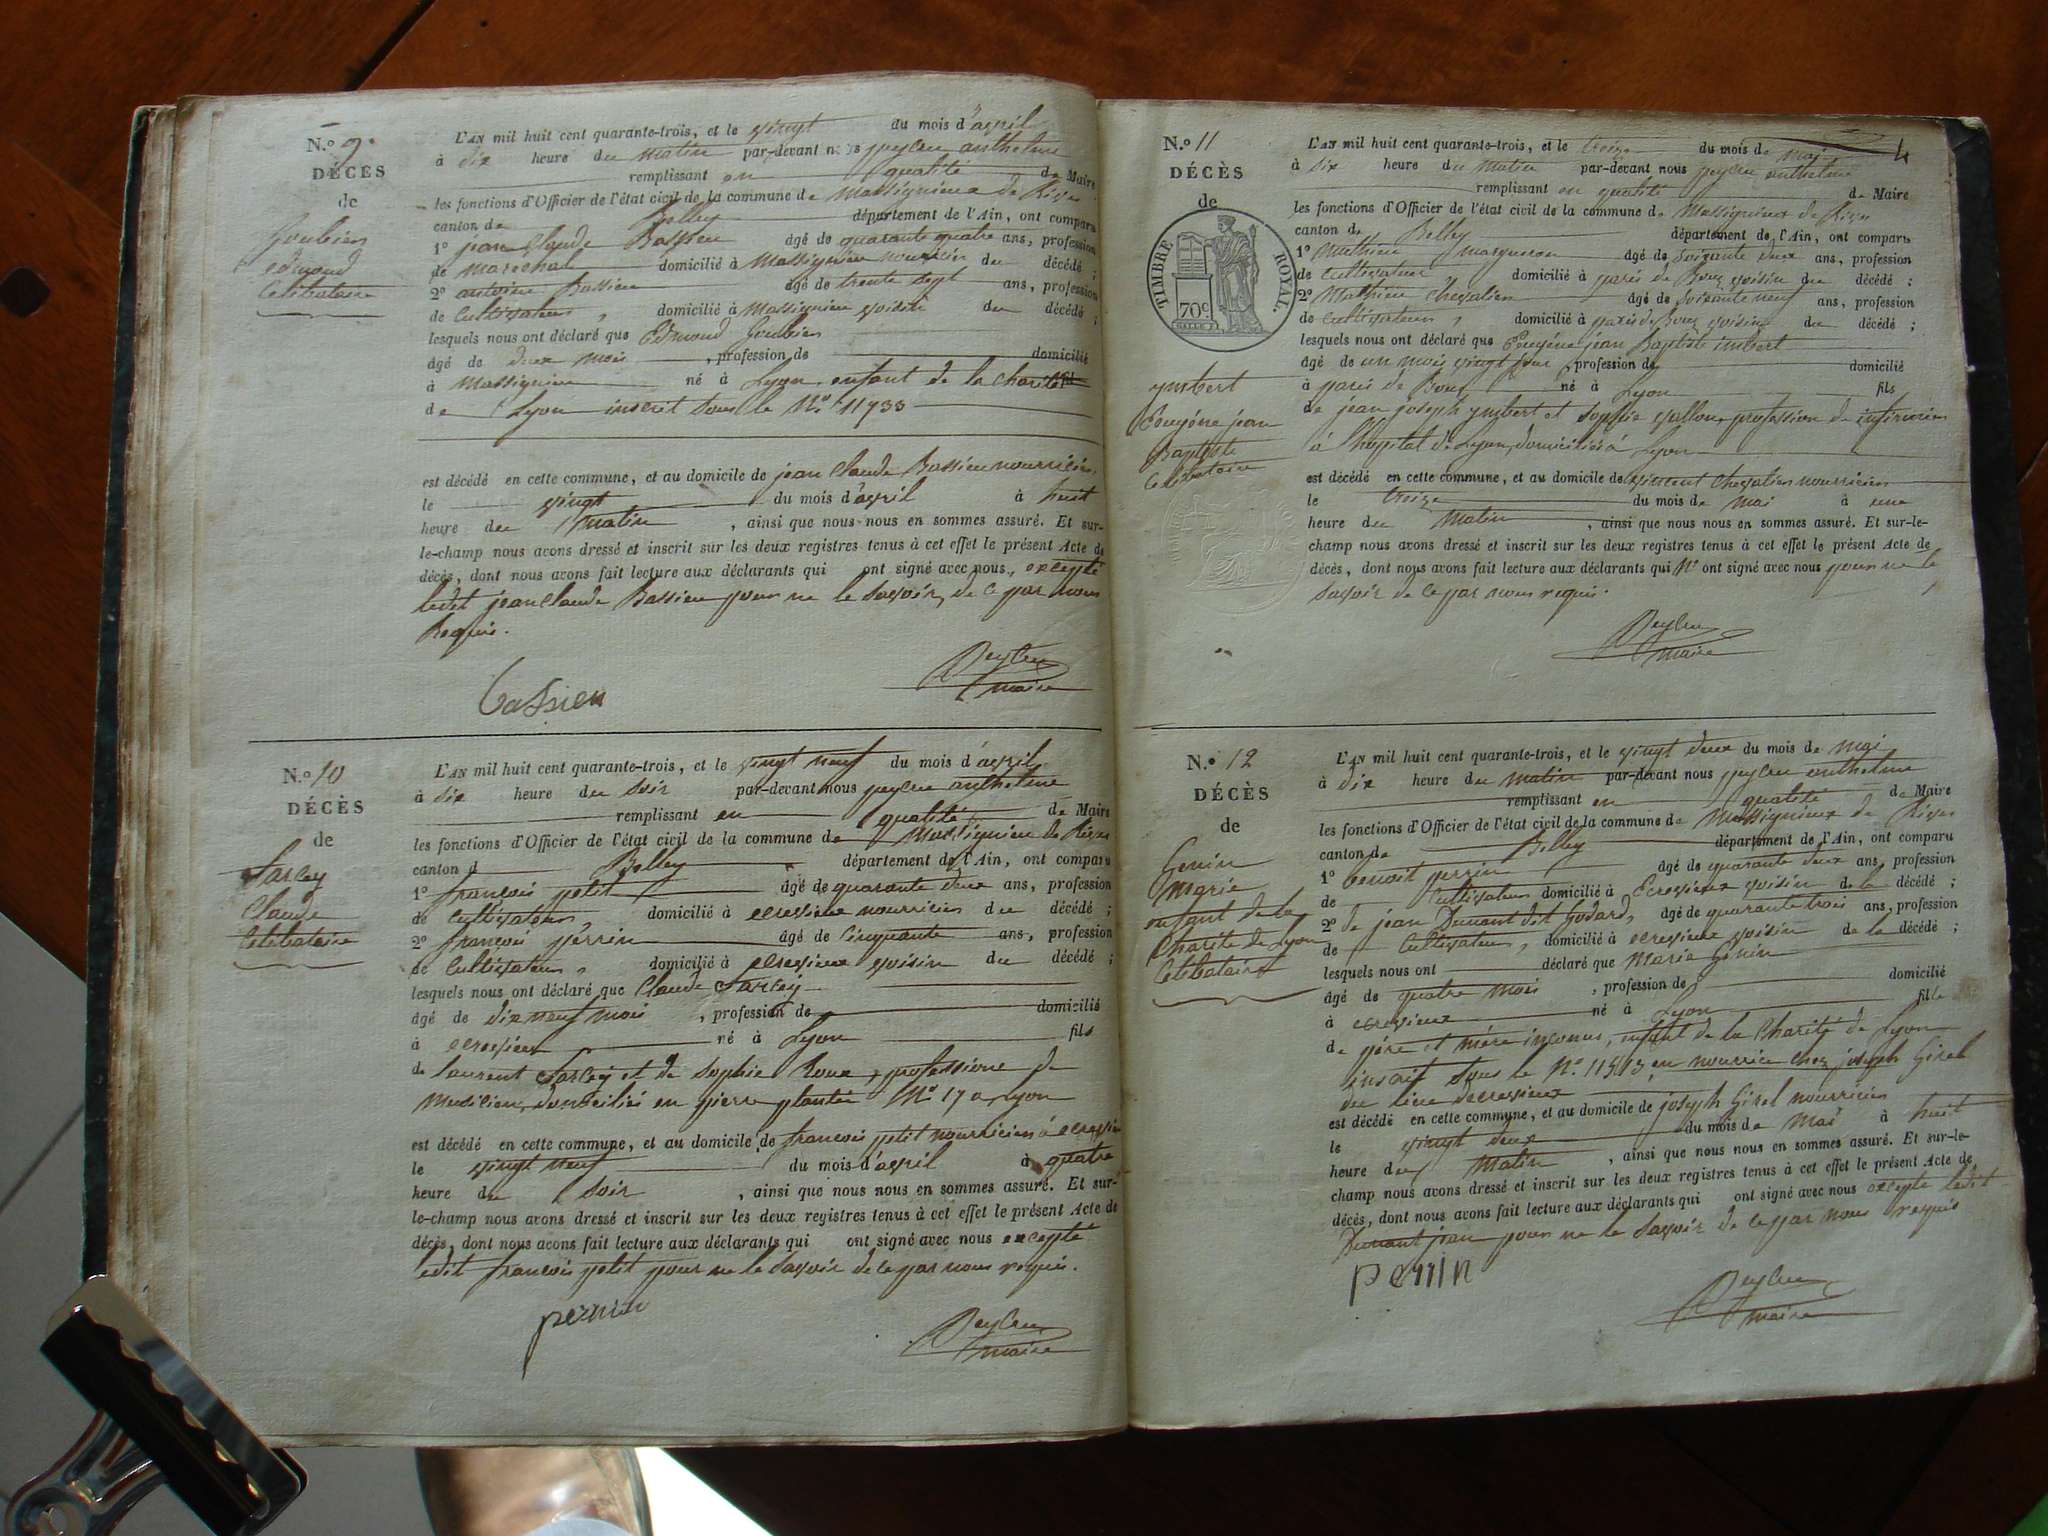 N.o 9.
DÉCÈS
de
Goubien
edmond
Celibataire
L'AN mil huit cent quarante-trois, et le vingt du mois d'avril
à dix heure du matin par-devant nous peyleu anthelme
remplissant en qualité de Maire
les fonctions d'Officier de l'état civil de la commune de Massignieux de Rives
canton de Belley département de l'Ain, ont comparu
1o jean Claude Bassieu âgé de quarante quatre ans, profession
de maréchal domicilié à Massignieu nourricier du décédé ;
2o antoine Bassieu âgé de trente sept ans, profession
de Cultivateur, domicilié à Massignieu voisin du décédé ;
lesquels nous ont déclaré que Edmond Goubien
âgé de deux mois, profession de domicilié
à Massignieu né à Lyon enfant de la charité fil
de Lyon inscrit sous le No. 11733
est décédé en cette commune, et au domicile de jean Claude Bassieu nourricier,
le vingt du mois d'avril à huit
heure du matin, ainsi que nous nous en sommes assuré. Et sur-
le-champ nous avons dressé et inscrit sur les deux registres tenus à cet effet le présent Acte de
décès, dont nous avons fait lecture aux déclarants qui ont signé avec nous, excepté
ledit jean Claude Bassieu pour ne le savoir, de ce par nous
Requis.
Bassieu
Peyleu
maire
N.o 10
DÉCÈS
de
Sarcey
Claude
Celibataire
L'AN mil huit cent quarante-trois, et le vingt neuf du mois d'avril
à six heure du soir par-devant nous peyleu anthelme
remplissant en qualité de Maire
les fonctions d'Officier de l'état civil de la commune de Massignieu de Rives
canton d Belley département de l'Ain, ont comparu
1o françois petit âgé de quarante deux ans, profession
de Cultivateur domicilié à ecressieux nourricier du décédé ;
2o françois perrin âgé de Cinquante ans, profession
de Cultivateur, domicilié à ecressieux voisin du décédé ;
lesquels nous ont déclaré que Claude Sarcey
âgé de dix neuf mois, profession de domicilié
à ecressieux né à Lyon fils
de laurent Sarcey et de Sophie Roux, professions de
Musicien, domiciliés en pierre plantée No 17 a Lyon
est décédé en cette commune, et au domicile de françois petit nourricier à ecressieu
le vingt neuf du mois d'avril à quatre
heure du soir, ainsi que nous nous en sommes assuré. Et sur-
le-champ nous avons dressé et inscrit sur les deux registres tenus à cet effet le présent Acte de
décès, dont nous avons fait lecture aux déclarants qui ont signé avec nous excepté
ledit françois petit pour ne le savoir de ce par nous requis.
perrin
Peyleu
maire
4
N.o 11
DÉCÈS
de
TIMBRE ROYAL.
70c.
ymbert
Eeugéne jean
Baptiste
Celibataire
L'AN mil huit cent quarante-trois, et le treize du mois de mai
à six heure du matin par-devant nous peyleu anthelme
remplissant en qualité de Maire
les fonctions d'Officier de l'état civil de la commune de Massignieux de Rives
canton de Belley département de l'Ain, ont comparu
1o Mathieu Marqueron âgé de soixante deux ans, profession
de Cultivateur domicilié à parés de Bouz voisin du décédé ;
2o Mathieu Chevalier âgé de soixante neuf ans, profession
de Cultivateur, domicilié à parés de Bouz voisin du décédé ;
lesquels nous ont déclaré que Eeugéne jean Baptiste imbert
âgé de un mois vingt jour, profession de domicilié
à parés de Bouz né à Lyon fils
de jean joseph ymbert et Sophie vallon, profession de infirmier
à l'hopital de Lyon, domiciliés à Lyon
est décédé en cette commune, et au domicile de vincent Chevalier nourricier
le treize du mois de mai à une
heure du matin, ainsi que nous nous en sommes assuré. Et sur-le-
champ nous avons dressé et inscrit sur les deux registres tenus à cet effet le présent Acte de
décès, dont nous avons fait lecture aux déclarants qui N' ont signé avec nous pour ne le
savoir de ce par nous requis.
Peyleu
maire
N.o 12
DÉCÈS
de
Genin
Marie
enfant de la
Charité de Lyon
Celibataire
L'AN mil huit cent quarante-trois, et le vingt deux du mois de mai
à dix heure du matin par-devant nous peyleu anthelme
remplissant en qualité de Maire
les fonctions d'Officier de l'état civil de la commune de Massignieux de Rives
canton de Belley département de l'Ain, ont comparu
1o benoit perrin âgé de quarante deux ans, profession
de Cultivateur domicilié à Ecressieux voisin de la décédé ;
2o de jean Dunant dit Godard, âgé de quarante trois ans, profession
de Cultivateur, domicilié à ecressieux voisin de la décédé ;
lesquels nous ont déclaré que Marie Génin
âgé de quatre mois, profession de domicilié
à ecressieux né à Lyon fille
de pére et mére inconus, enfant de la Charité de Lyon
inscrit sous le No. 11513 en nourrice chez joseph Girel
du lieu decressieux
est décédé en cette commune, et au domicile de joseph Girel nourricier
le vingt deux du mois de Mai à huit
heure du matin, ainsi que nous nous en sommes assuré. Et sur-le-
champ nous avons dressé et inscrit sur les deux registres tenus à cet effet le présent Acte de
décès, dont nous avons fait lecture aux déclarants qui ont signé avec nous excepté ledit
Dunant jean pour ne le savoir de ce par nous requis
perrin
Peyleu
maire